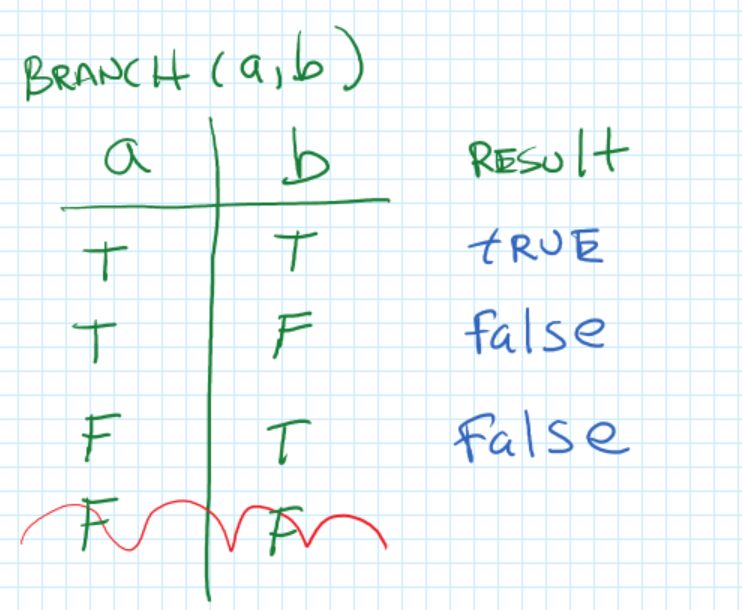 BRANCH (a,b)
a b RESUlt
T T tRUE
T F false
F T False
F F